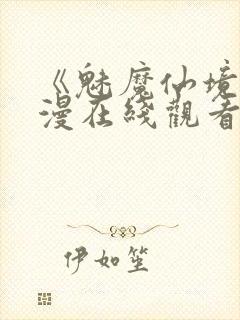 《魅魔仙境
漫在綫觀看
伊如笙